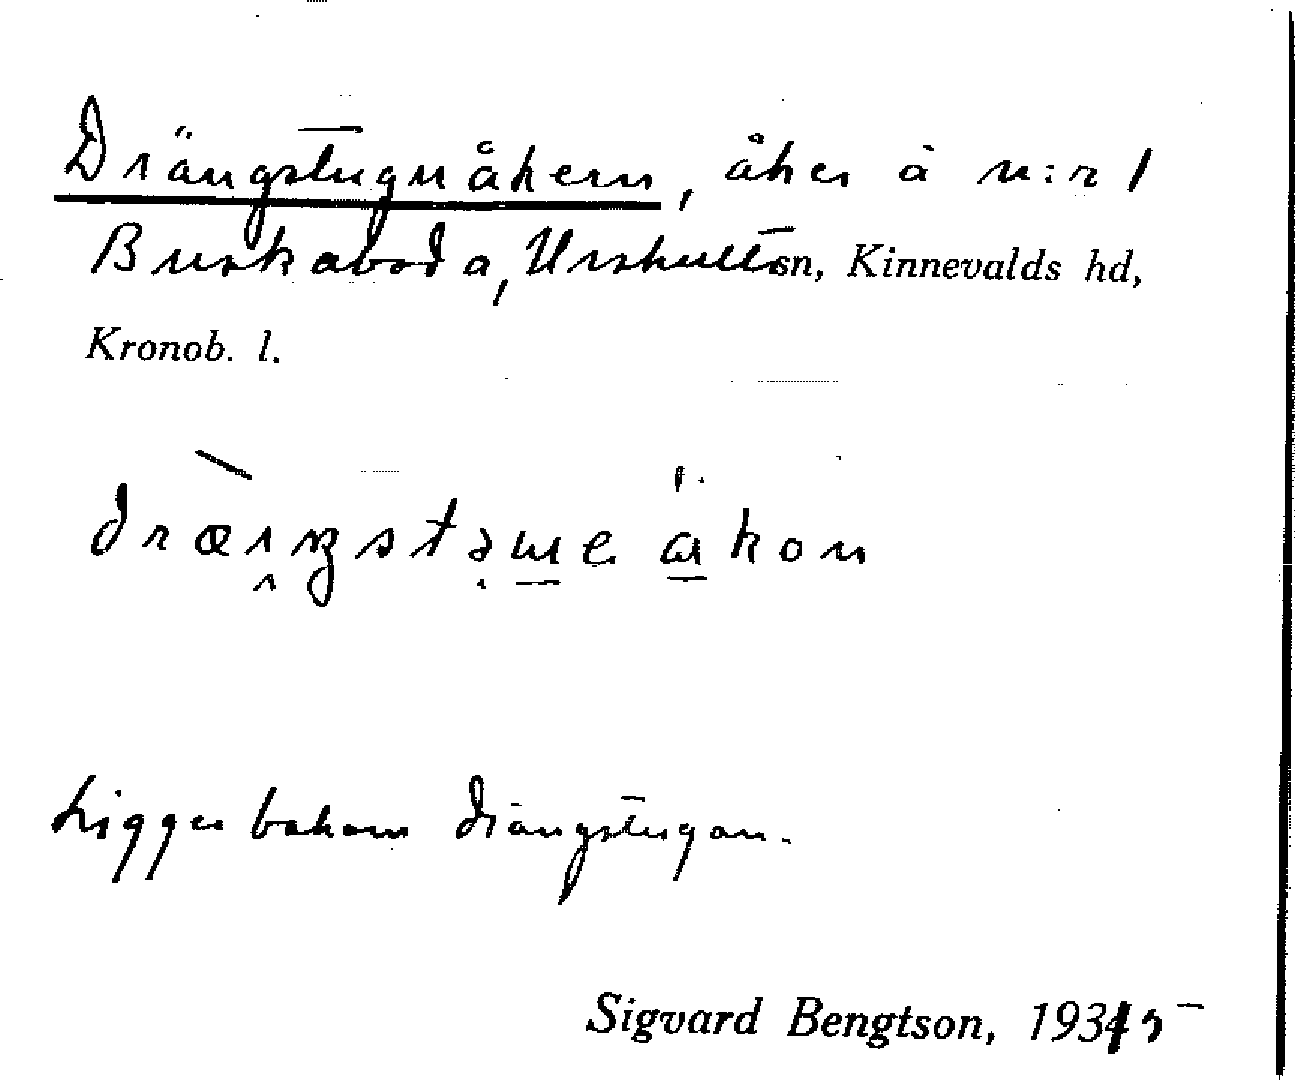 Drängstugnåkern, åker å n:r 1
Buskaboda, Urshults sn, Kinnevalds hd,
Kronob. l.
Ligger bakom drängstugan.
Sigvard Bengtson, 1935